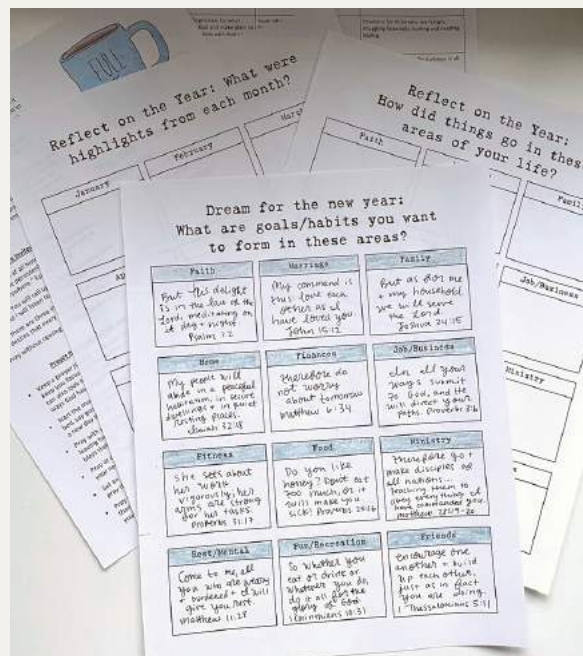 FULL
Reflect on the Year: What were
highlights from each month?
January
February
Reflect on the Year:
How did things go in these
areas of your life?
Faith
Job/Business
Ministry
Dream for the new year:
What are goals/habits you want
to form in these areas?
Faith
But his delight
is in the law of the
Lord, meditating on
it day + night.
Psalm 1:2
Marriage
My command is
this: love each
other as I
have loved you.
John 15:12
Family
But as for me
+ my household
we will serve
the Lord.
Joshua 24:15
Home
My people will
abide in a peaceful
habitation, in secure
dwellings + in quiet
resting places.
Isaiah 32:18
Finances
Therefore do
not worry
about tomorrow
Matthew 6:34
Job/Business
In all your
ways submit
to God, and He
will direct your
paths. Proverbs 3:6
Fitness
She sets about
her work
vigorously; her
arms are strong
for her tasks.
Proverbs 31:17
Food
Do you like
honey? Don't eat
too much, or it
will make you
sick! Proverbs 25:16
Ministry
Therefore go +
make disciples of
all nations...
teaching them to
obey everything I
have commanded you.
Matthew 28:19-20
Rest/Mental
Come to me, all
you who are weary
+ burdened + I will
give you rest.
Matthew 11:28
Fun/Recreation
So whether you
eat or drink or
whatever you do,
do it all for the
glory of God
1 Corinthians 10:31
Friends
encourage one
another + build
up each other,
just as in fact
you are doing.
1 Thessalonians 5:11